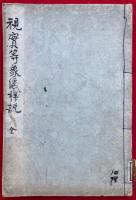 視實等象儀詳説 全